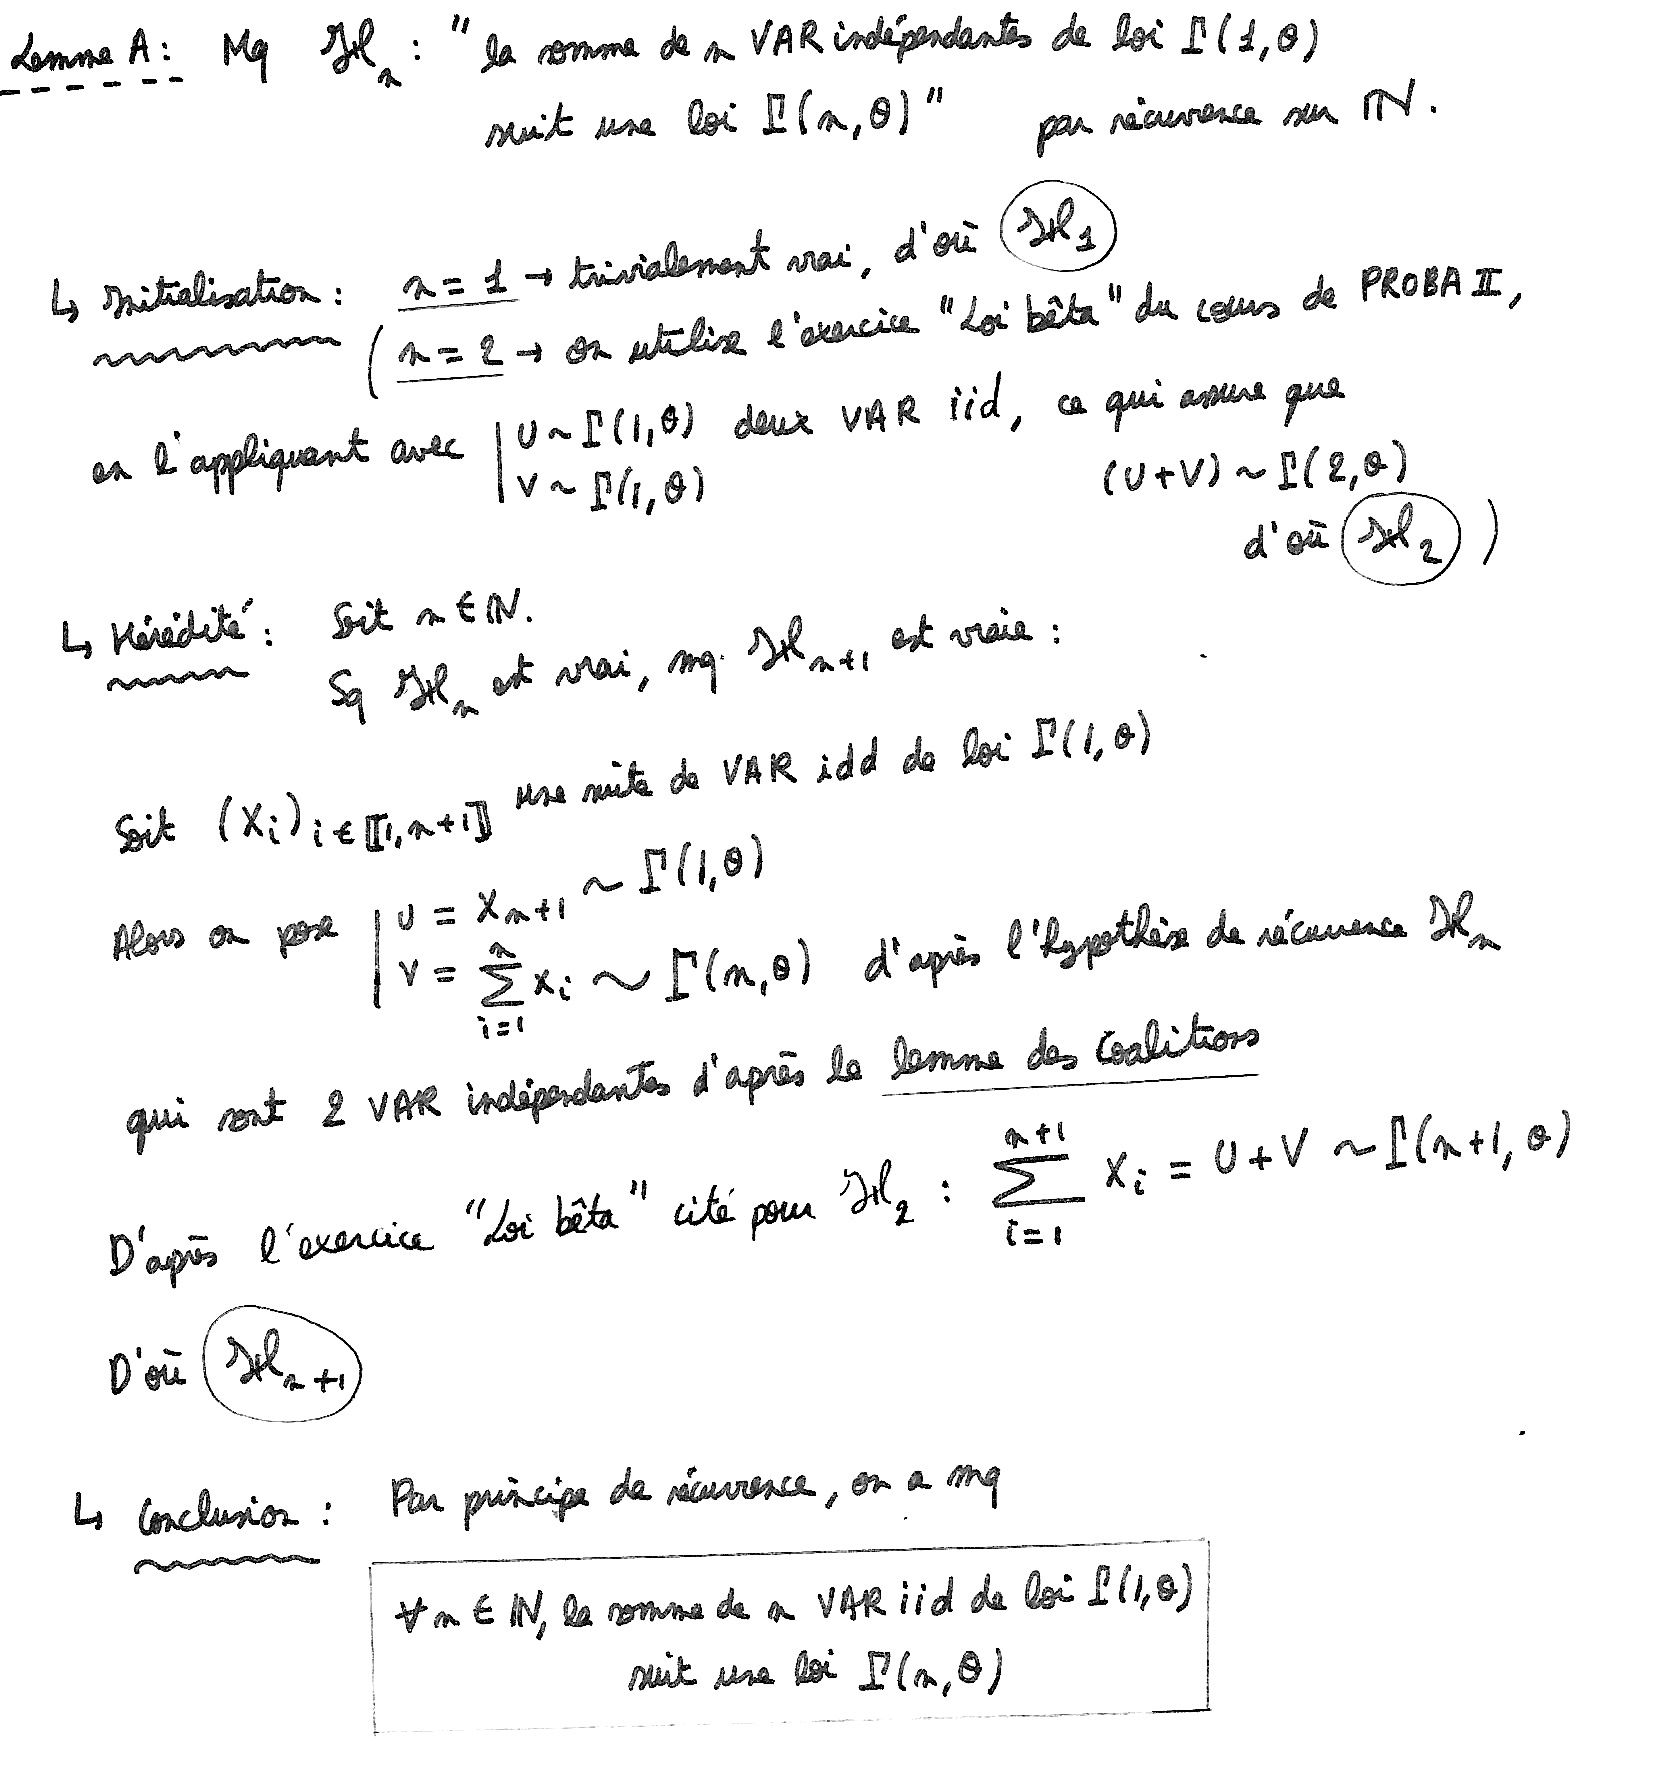 Lemme A : Mq ℋₙ : "la somme de n VAR indépendantes de loi Γ(1,θ)
suit une loi Γ(n,θ)" par récurrence sur ℕ.
↳ Initialisation : n = 1 → trivialement vrai, d'où ℋ₁
(n = 2 → on utilise l'exercice "Loi bêta" du cours de PROBA II,
en l'appliquant avec | U ~ Γ(1,θ) deux VAR iid, ce qui assure que
| V ~ Γ(1,θ) (U+V) ~ Γ(2,θ)
d'où ℋ₂ )
↳ Hérédité : Soit n ∈ ℕ.
Sq ℋₙ est vrai, mq. ℋₙ₊₁ est vraie :
Soit (Xᵢ)ᵢ ∈ ⟦1,n+1⟧ une suite de VAR idd de loi Γ(1,θ)
Alors on pose | U = Xₙ₊₁ ~ Γ(1,θ)
| V = ∑ᵢ₌₁ⁿ Xᵢ ~ Γ(n,θ) d'après l'hypothèse de récurrence ℋₙ
qui sont 2 VAR indépendantes d'après le lemme des Coalitions
D'après l'exercice "Loi bêta" cité pour ℋ₂ : ∑ᵢ₌₁ⁿ⁺¹ Xᵢ = U+V ~ Γ(n+1,θ)
D'où ℋₙ₊₁
↳ Conclusion : Par principe de récurrence, on a mq
∀n ∈ ℕ, la somme de n VAR iid de loi Γ(1,θ)
suit une loi Γ(n,θ)